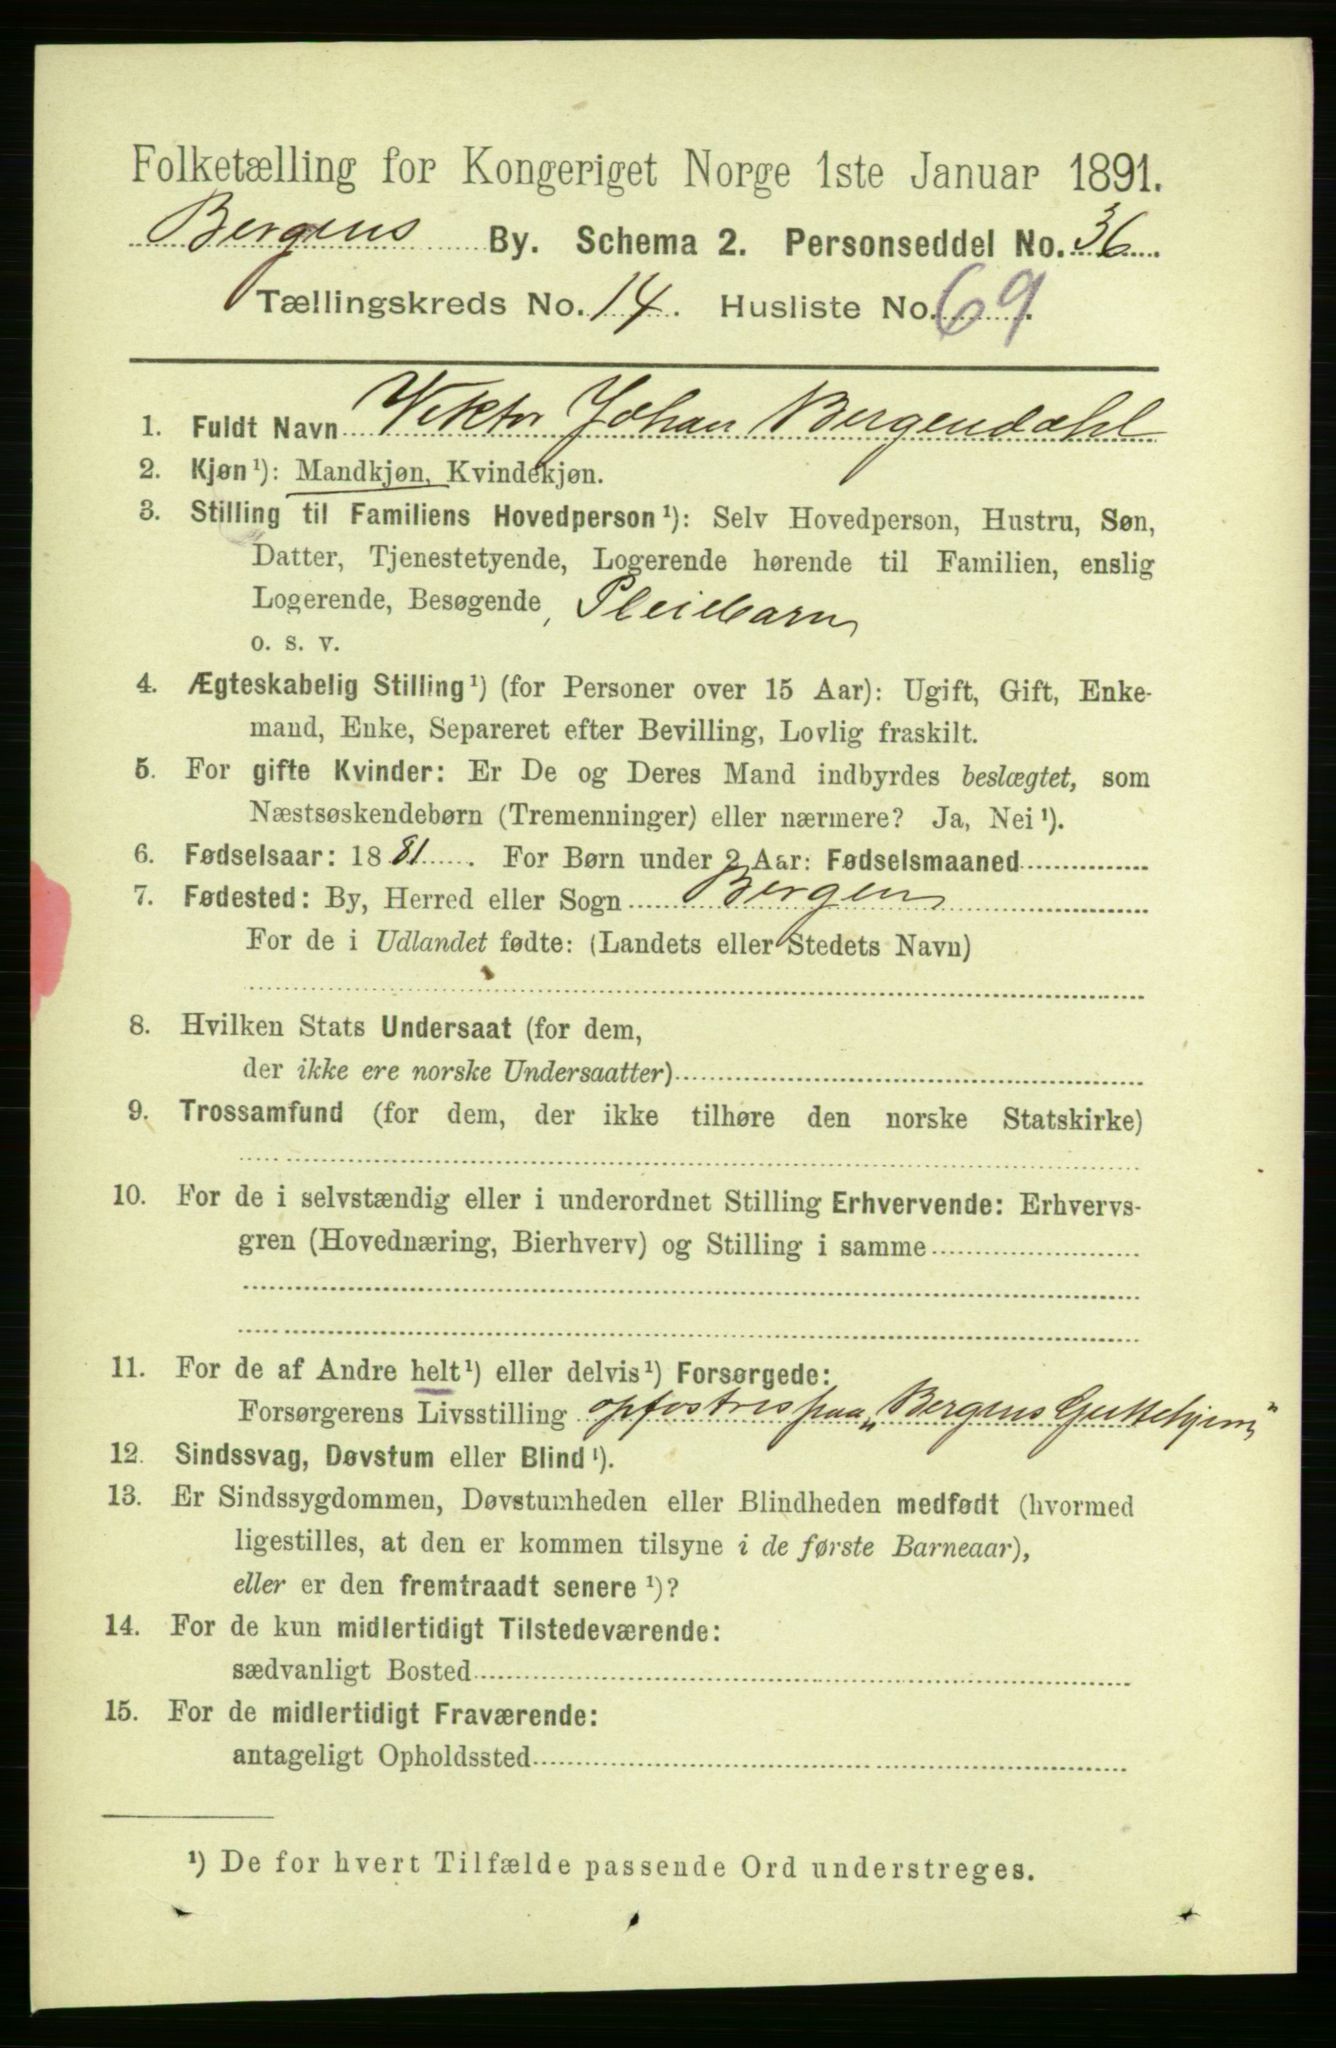 Folketælling for Kongeriget Norge 1ste Januar 1891.
Bergens By. Schema 2. Personseddel No. 36.
Tællingskreds No. 14. Husliste No. 69.
1. Fuldt Navn Viktor Johan Bergendahl
2. Kjøn¹): Mandkjøn, Kvindekjøn.
3. Stilling til Familiens Hovedperson¹): Selv Hovedperson, Hustru, Søn,
Datter, Tjenestetyende, Logerende hørende til Familien, enslig
Logerende, Besøgende, Pleiebarn
o. s. v.
4. Ægteskabelig Stilling¹) (for Personer over 15 Aar): Ugift, Gift, Enke-
mand, Enke, Separeret efter Bevilling, Lovlig fraskilt.
5. For gifte Kvinder: Er De og Deres Mand indbyrdes beslægtet, som
Næstsøskendebørn (Tremenninger) eller nærmere? Ja, Nei¹).
6. Fødselsaar: 1881. For Børn under 2 Aar: Fødselsmaaned
7. Fødested: By, Herred eller Sogn Bergen
For de i Udlandet fødte: (Landets eller Stedets Navn)
8. Hvilken Stats Undersaat (for dem,
der ikke ere norske Undersaatter)
9. Trossamfund (for dem, der ikke tilhøre den norske Statskirke)
10. For de i selvstændig eller i underordnet Stilling Erhvervende: Erhvervs-
gren (Hovednæring, Bierhverv) og Stilling i samme
11. For de af Andre helt¹) eller delvis¹) Forsørgede:
Forsørgerens Livsstilling opfostres paa „Bergens Guttehjem"
12. Sindssvag, Døvstum eller Blind¹).
13. Er Sindssygdommen, Døvstumheden eller Blindheden medfødt (hvormed
ligestilles, at den er kommen tilsyne i de første Barneaar),
eller er den fremtraadt senere¹)?
14. For de kun midlertidigt Tilstedeværende:
sædvanligt Bosted
15. For de midlertidigt Fraværende:
antageligt Opholdssted
¹) De for hvert Tilfælde passende Ord understreges.